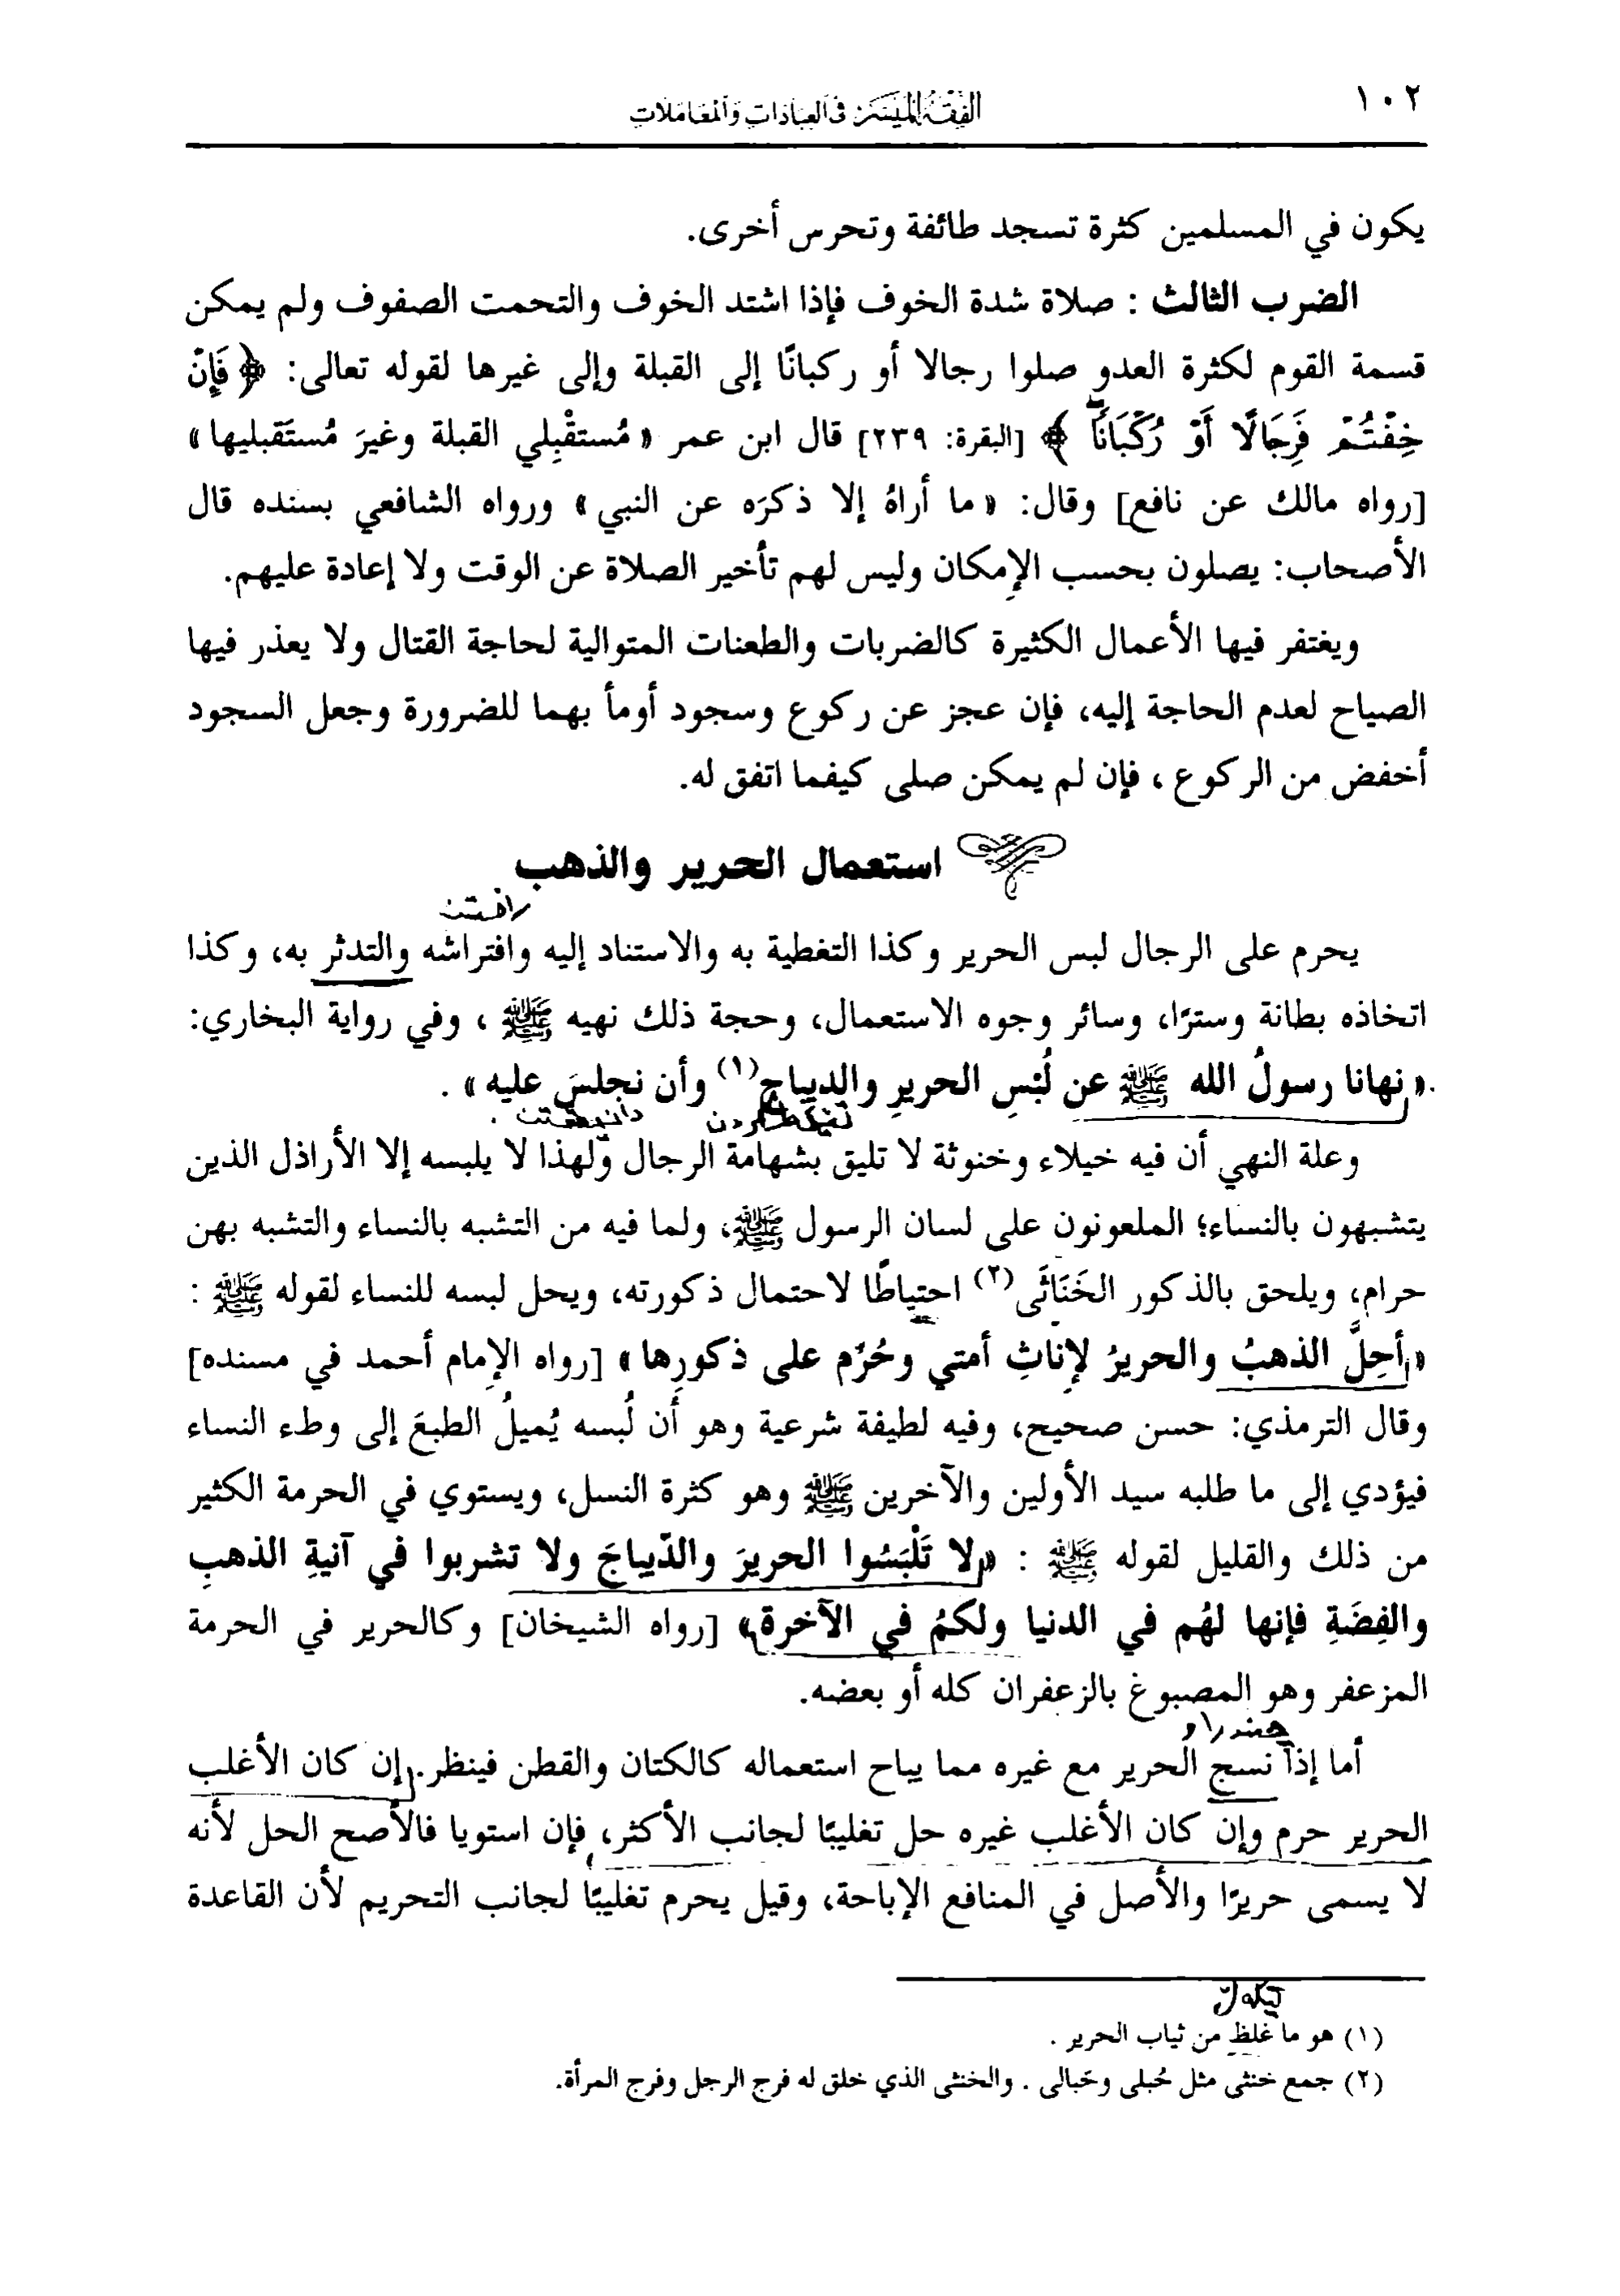 ١٠٢
الفقه الميسر في العبادات والمعاملات
يكون في المسلمين كثرة تسجد طائفة وتحرس أخرى.
الضرب الثالث : صلاة شدة الخوف فإذا اشتد الخوف والتحمت الصفوف ولم يمكن
قسمة القوم لكثرة العدو صلوا رجالا أو ركبانًا إلى القبلة وإلى غيرها لقوله تعالى: ﴿ فَإِنْ
خِفْتُمْ فَرِجَالًا أَوْ رُكْبَانًا ﴾ [البقرة: ٢٣٩] قال ابن عمر « مُستقْبِلي القبلة وغيرَ مُستَقبليها »
[رواه مالك عن نافع] وقال: « ما أراهُ إلا ذكرَه عن النبي » ورواه الشافعي بسنده قال
الأصحاب: يصلون بحسب الإمكان وليس لهم تأخير الصلاة عن الوقت ولا إعادة عليهم.
ويغتفر فيها الأعمال الكثيرة كالضربات والطعنات المتوالية لحاجة القتال ولا يعذر فيها
الصياح لعدم الحاجة إليه، فإن عجز عن ركوع وسجود أومأ بهما للضرورة وجعل السجود
أخفض من الركوع ، فإن لم يمكن صلى كيفما اتفق له.
استعمال الحرير والذهب
يحرم على الرجال لبس الحرير وكذا التغطية به والاستناد إليه وافتراشه والتدثر به، وكذا
اتخاذه بطانة وسترًا، وسائر وجوه الاستعمال، وحجة ذلك نهيه ﷺ ، وفي رواية البخاري:
« نهانا رسولُ الله ﷺ عن لُبْسِ الحريرِ والديباجِ(١) وأن نجلسَ عليه » .
وعلة النهي أن فيه خيلاء وخنوثة لا تليق بشهامة الرجال ولهذا لا يلبسه إلا الأراذل الذين
يتشبهون بالنساء؛ الملعونون على لسان الرسول ﷺ، ولما فيه من التشبه بالنساء والتشبه بهن
حرام، ويلحق بالذكور الخَنَاثَى(٢) احتياطًا لاحتمال ذكورته، ويحل لبسه للنساء لقوله ﷺ :
« أحِلَّ الذهبُ والحريرُ لإناثِ أمتي وحُرّم على ذكورِها » [رواه الإمام أحمد في مسنده]
وقال الترمذي: حسن صحيح، وفيه لطيفة شرعية وهو أن لُبسه يُميلُ الطبعَ إلى وطء النساء
فيؤدي إلى ما طلبه سيد الأولين والآخرين ﷺ وهو كثرة النسل، ويستوي في الحرمة الكثير
من ذلك والقليل لقوله ﷺ : « لا تَلْبَسُوا الحريرَ والدّيباجَ ولا تشربوا في آنيةِ الذهبِ
والفِضَةِ فإنها لهُم في الدنيا ولكمُ في الآخرة» [رواه الشيخان] وكالحرير في الحرمة
المزعفر وهو المصبوغ بالزعفران كله أو بعضه.
أما إذا نسج الحرير مع غيره مما يباح استعماله كالكتان والقطن فينظر. إن كان الأغلب
الحرير حرم وإن كان الأغلب غيره حل تغليبًا لجانب الأكثر، فإن استويا فالأصح الحل لأنه
لا يسمى حريرًا والأصل في المنافع الإباحة، وقيل يحرم تغليبًا لجانب التحريم لأن القاعدة
(١) هو ما غلظ من ثياب الحرير .
(٢) جمع خنثى مثل حُبلى وحَبالى . والخنثى الذي خلق له فرج الرجل وفرج المرأة.